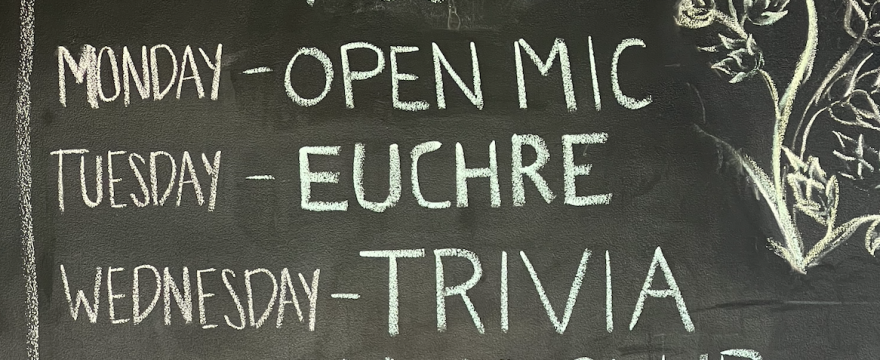 MONDAY - OPEN MIC
TUESDAY - EUCHRE
WEDNESDAY - TRIVIA